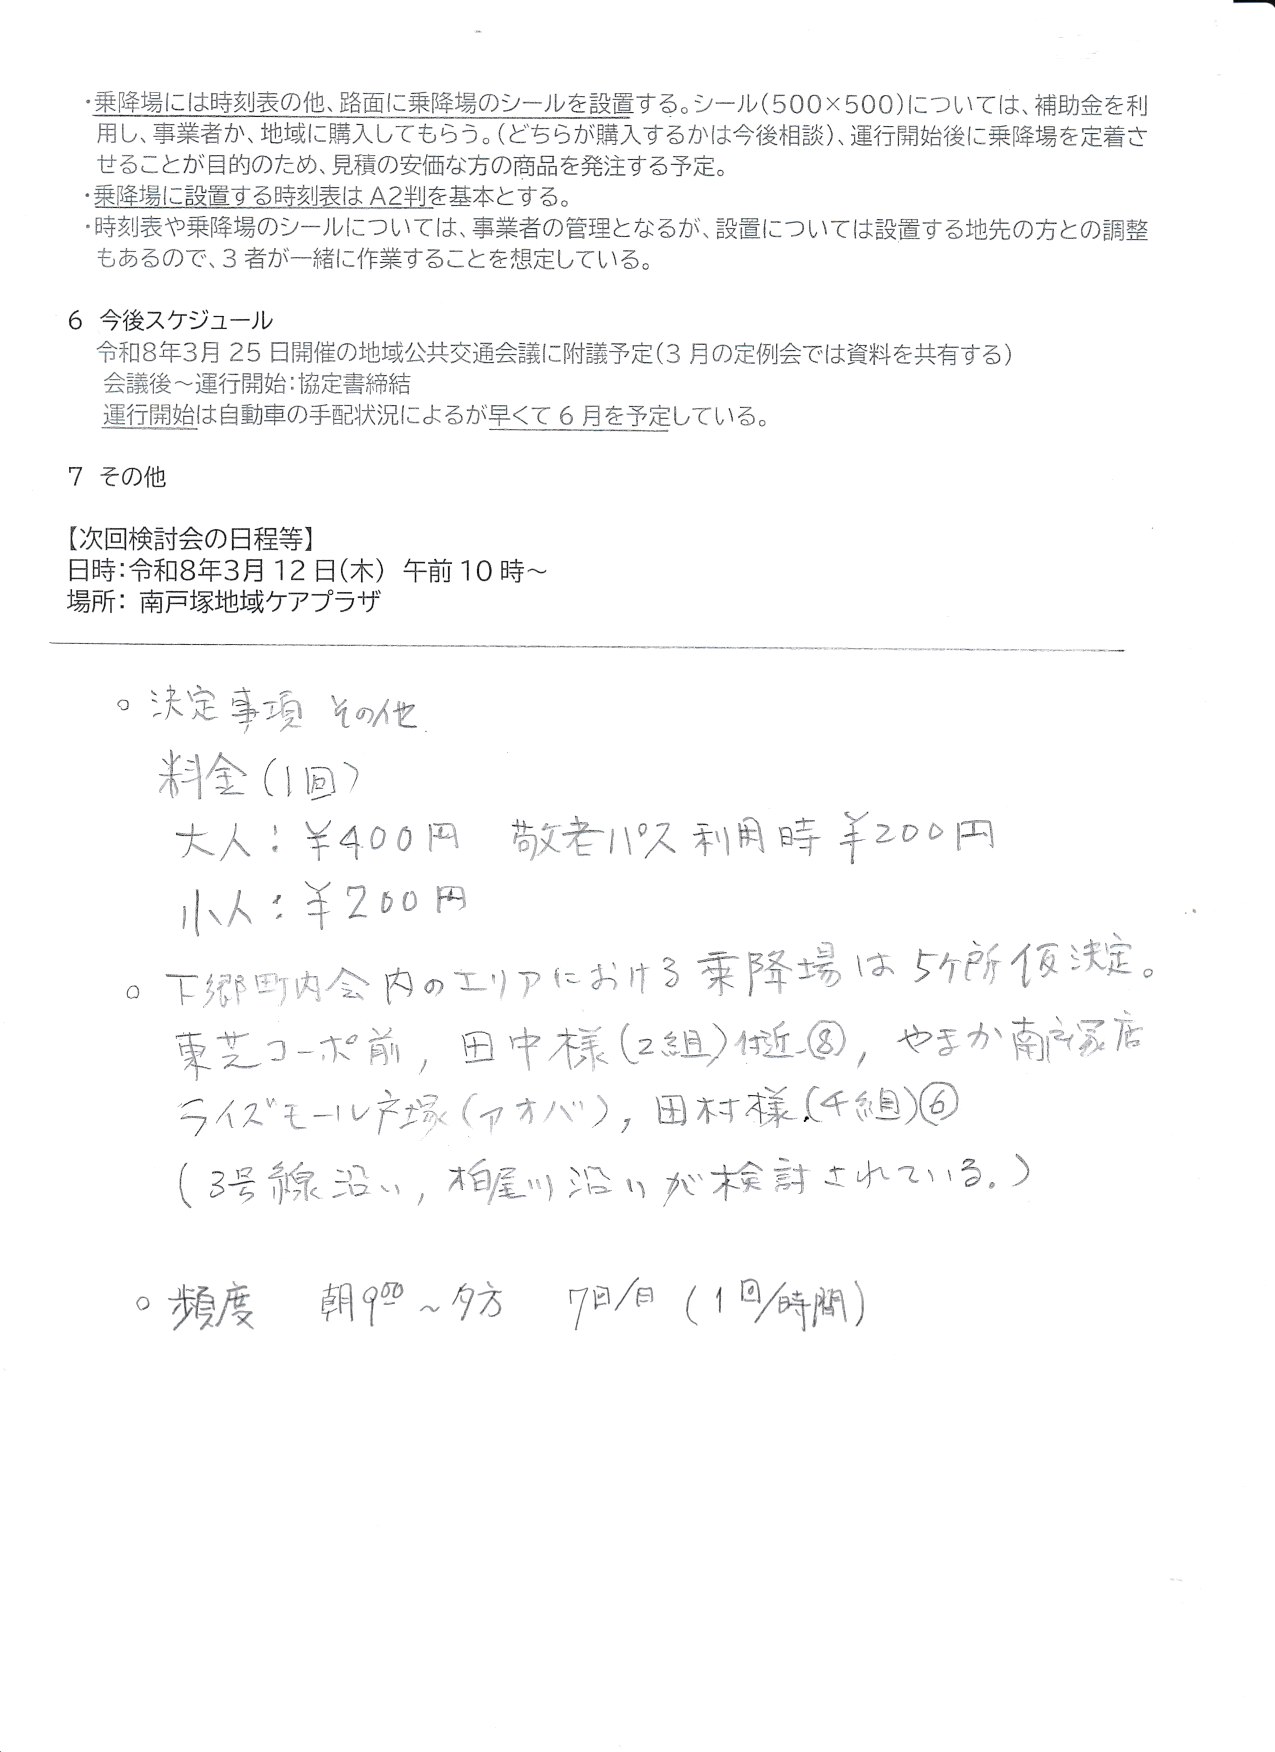 ・乗降場には時刻表の他、路面に乗降場のシールを設置する。シール(500×500)については、補助金を利
用し、事業者か、地域に購入してもらう。(どちらが購入するかは今後相談)、運行開始後に乗降場を定着さ
せることが目的のため、見積の安価な方の商品を発注する予定。
・乗降場に設置する時刻表は A2判を基本とする。
・時刻表や乗降場のシールについては、事業者の管理となるが、設置については設置する地先の方との調整
もあるので、3 者が一緒に作業することを想定している。
6 今後スケジュール
令和8年3月 25 日開催の地域公共交通会議に附議予定(3 月の定例会では資料を共有する)
会議後～運行開始:協定書締結
運行開始は自動車の手配状況によるが早くて 6 月を予定している。
7 その他
【次回検討会の日程等】
日時:令和8年3月 12 日(木) 午前 10 時～
場所: 南戸塚地域ケアプラザ
○ 決定事項 その他
料金(1回)
大人:¥400円 敬老パス利用時¥200円
小人:¥200円
○ 下郷町内会内のエリアにおける乗降場は5ヶ所仮決定。
東芝コーポ前, 田中様(2組)付近⑧, やまか南戸塚店
ライズモール戸塚(アオバ), 田村様(4組)⑥
(3号線沿い, 柏尾川沿いが検討されている。)
○ 頻度 朝9:00～夕方 7回/日 (1回/時間)